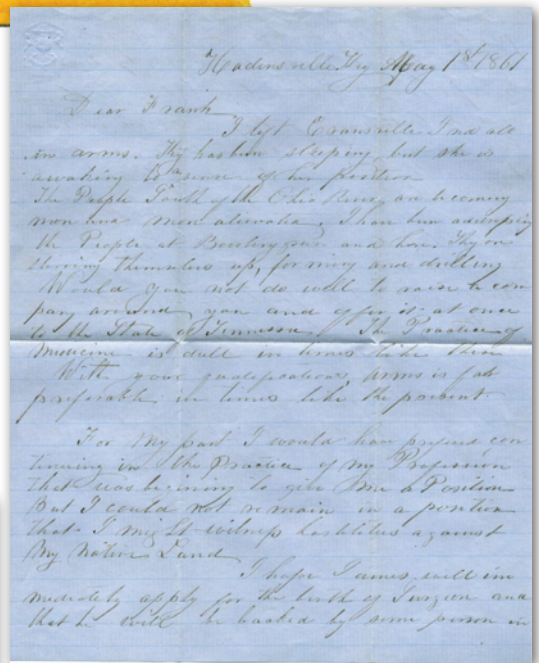 Hadensville Ky May 1st 1861
Dear Frank
I left Evansville Ind all
in arms. Ky has been sleeping, but she is
awaking to a sense of her position
The People South of the Ohio River are becoming
more and more alienated. I have been addressing
the People at Bowlinggreen and here. They are
stirring themselves up, forming and drilling
Would you not do well to raise a com
pany around you and offer it at once
to the State of Tennessee. The Practice of
Medicine is dull in times like these
With your qualifications, arms is far
preferable in times like the present.
For my part I would have prefered con
tinuing in the Practice of my Profession
that was begining to give me a Position
But I could not remain in a position
that I might witness hostilities against
my Native Land
I hope James will im
mediately apply for the birth of Surgeon and
that he will be backed by some person in